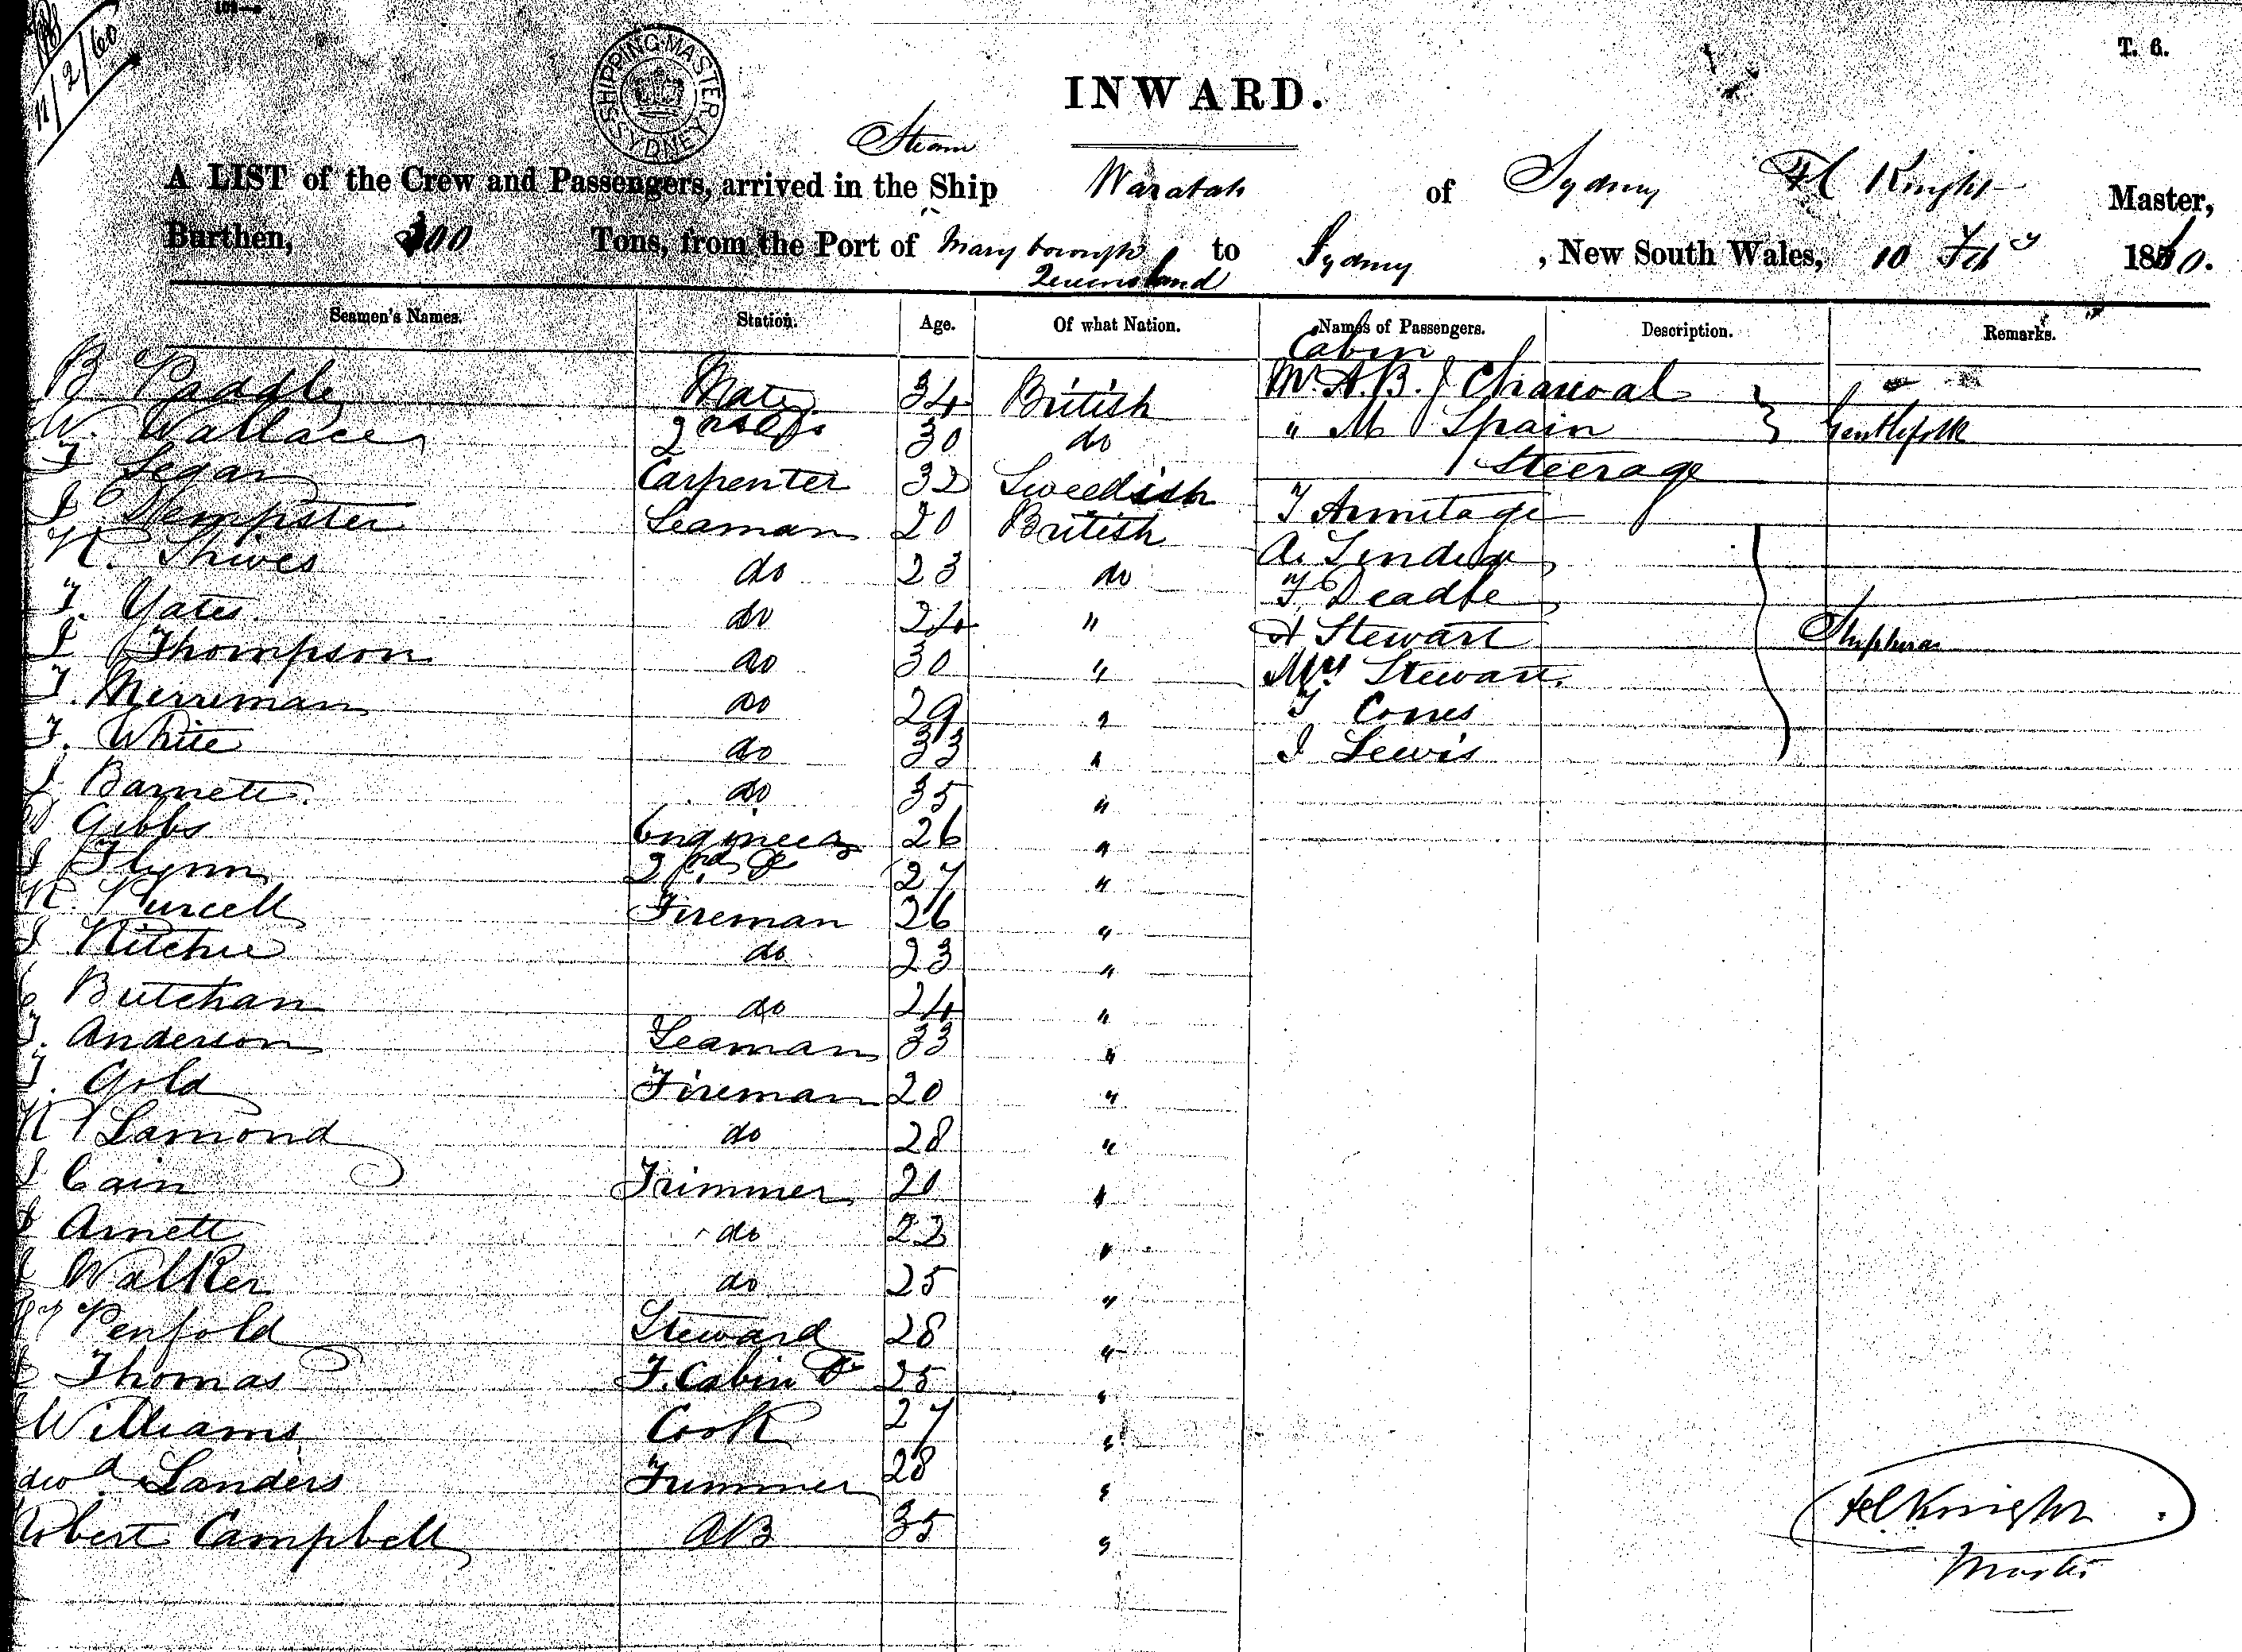 12/2/60
SHIPPING MASTER SYDNEY
T. 6.
INWARD.
Steam
A LIST of the Crew and Passengers, arrived in the Ship Waratah of Sydney Knight Master,
Burthen, 300 Tons, from the Port of Maryborough to Sydney, New South Wales, 10 Feby 1860.
Queensland
Seamen's Names. Station. Age. Of what Nation. Names of Passengers. Description. Remarks.
Cabin
B Paddle Mate 34 British Mr. A.B.
W. Wallace 2nd Do 30 do " M Spain Gentlefolk
T Segar Carpenter 32 Sweedish Steerage
J Dempster Seaman 20 British T Armitage
Shives do 23 do A.
T. Yates do 24 " T
J Thompson do 30 " Stewart
T. Merriman do 29 " Mrs Stewart
T. White do 33 " T
J Barnett do 35 " J Lewis
Gibbs Engineer 26 "
J Flynn 2nd Do 27 "
R. Purcell Fireman 26 "
J Ritchie do 23 "
Butchan do 24 "
T. Anderson Seaman 33 "
T. Gold Fireman 20 "
R Lamond do 28 "
J Cain Trimmer 20 "
J Arnett do 22 "
J Walker do 25 "
Penfold Steward 28 "
Thomas F. Cabin Do 25 "
Williams Cook 27 "
Landers Trimmer 28 "
Robert Campbell AB 35 "
Knight
Master